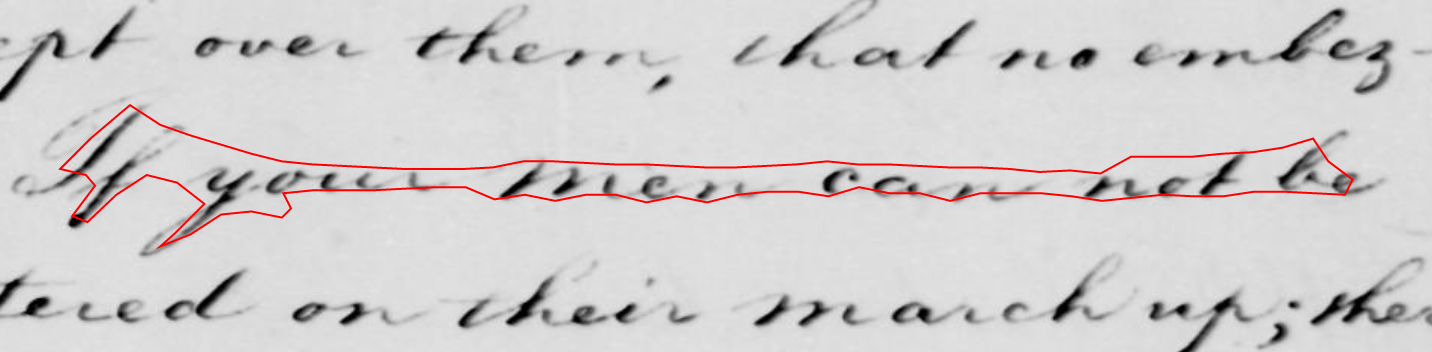 ept over them, that no embez-
If your men can not be
tered on their march up; ther